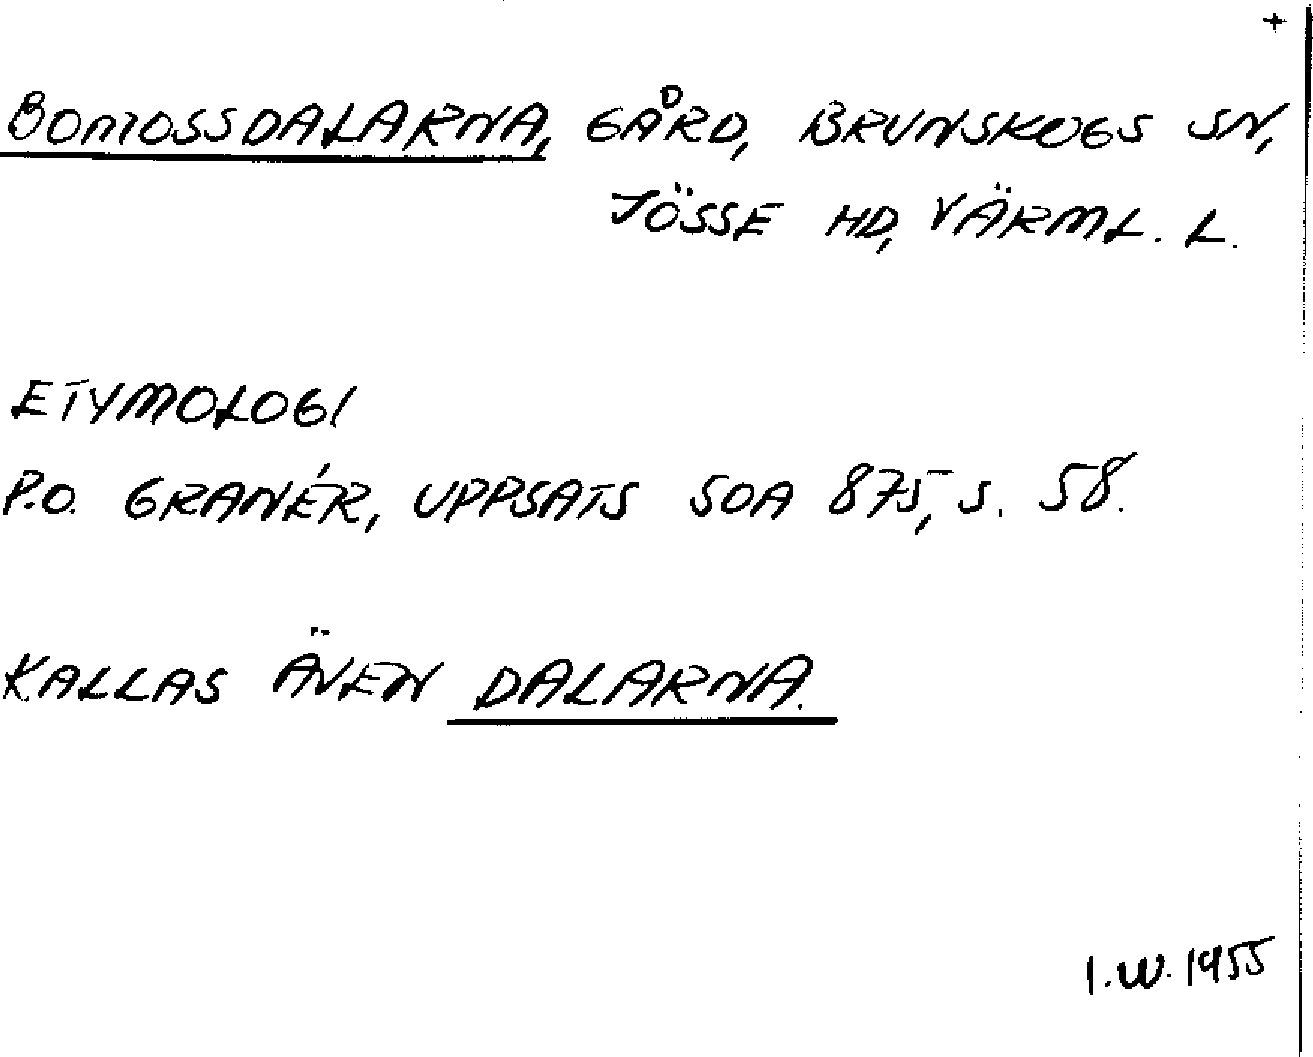 +
BOMOSSDALARNA, GÅRD, BRUNSKOGS SN,
JÖSSE HD, VÄRML. L.
ETYMOLOGI
P.O. GRANÉR, UPPSATS SOA 875, S. 58.
KALLAS ÄVEN DALARNA.
I.W. 1955